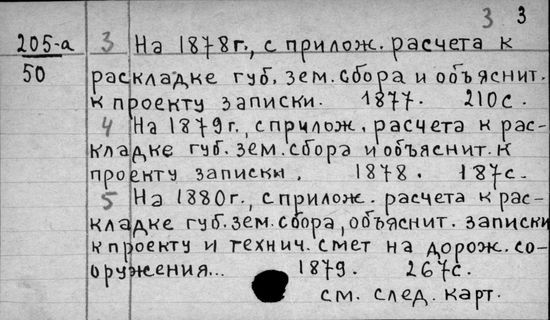 3 3
205-а 3 На 1878г., с прилож. расчета к
50 раскладке губ. зем. сбора и объяснит.
к проекту записки. 1877. 210с.
4 На 1879г., с прилож. расчета к рас-
кладке губ. зем. сбора и объяснит. к
проекту записки. 1878. 187с.
5 На 1880г., с прилож. расчета к рас-
кладке губ. зем. сбора, объяснит. записки
к проекту и технич. смет на дорож. со-
оружения... 1879. 267с.
см. след. карт.